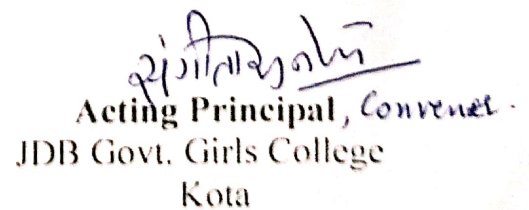 Acting Principal, Convener.
JDB Govt. Girls College
Kota